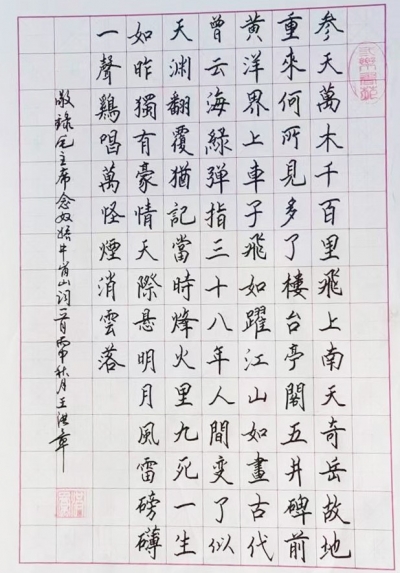 参天萬木千百里飛上南天奇岳故地
重來何所見多了樓台亭閣五井碑前
黄洋界上車子飛如躍江山如畫古代
曾云海綠彈指三十八年人間變了似
天渊翻覆猶記當時烽火里九死一生
如昨獨有豪情天際懸明月風雷磅礴
一聲鷄唱萬怪煙消雲落
敬録毛主席念奴嬌井岡山词一首丙申秋月王洪章